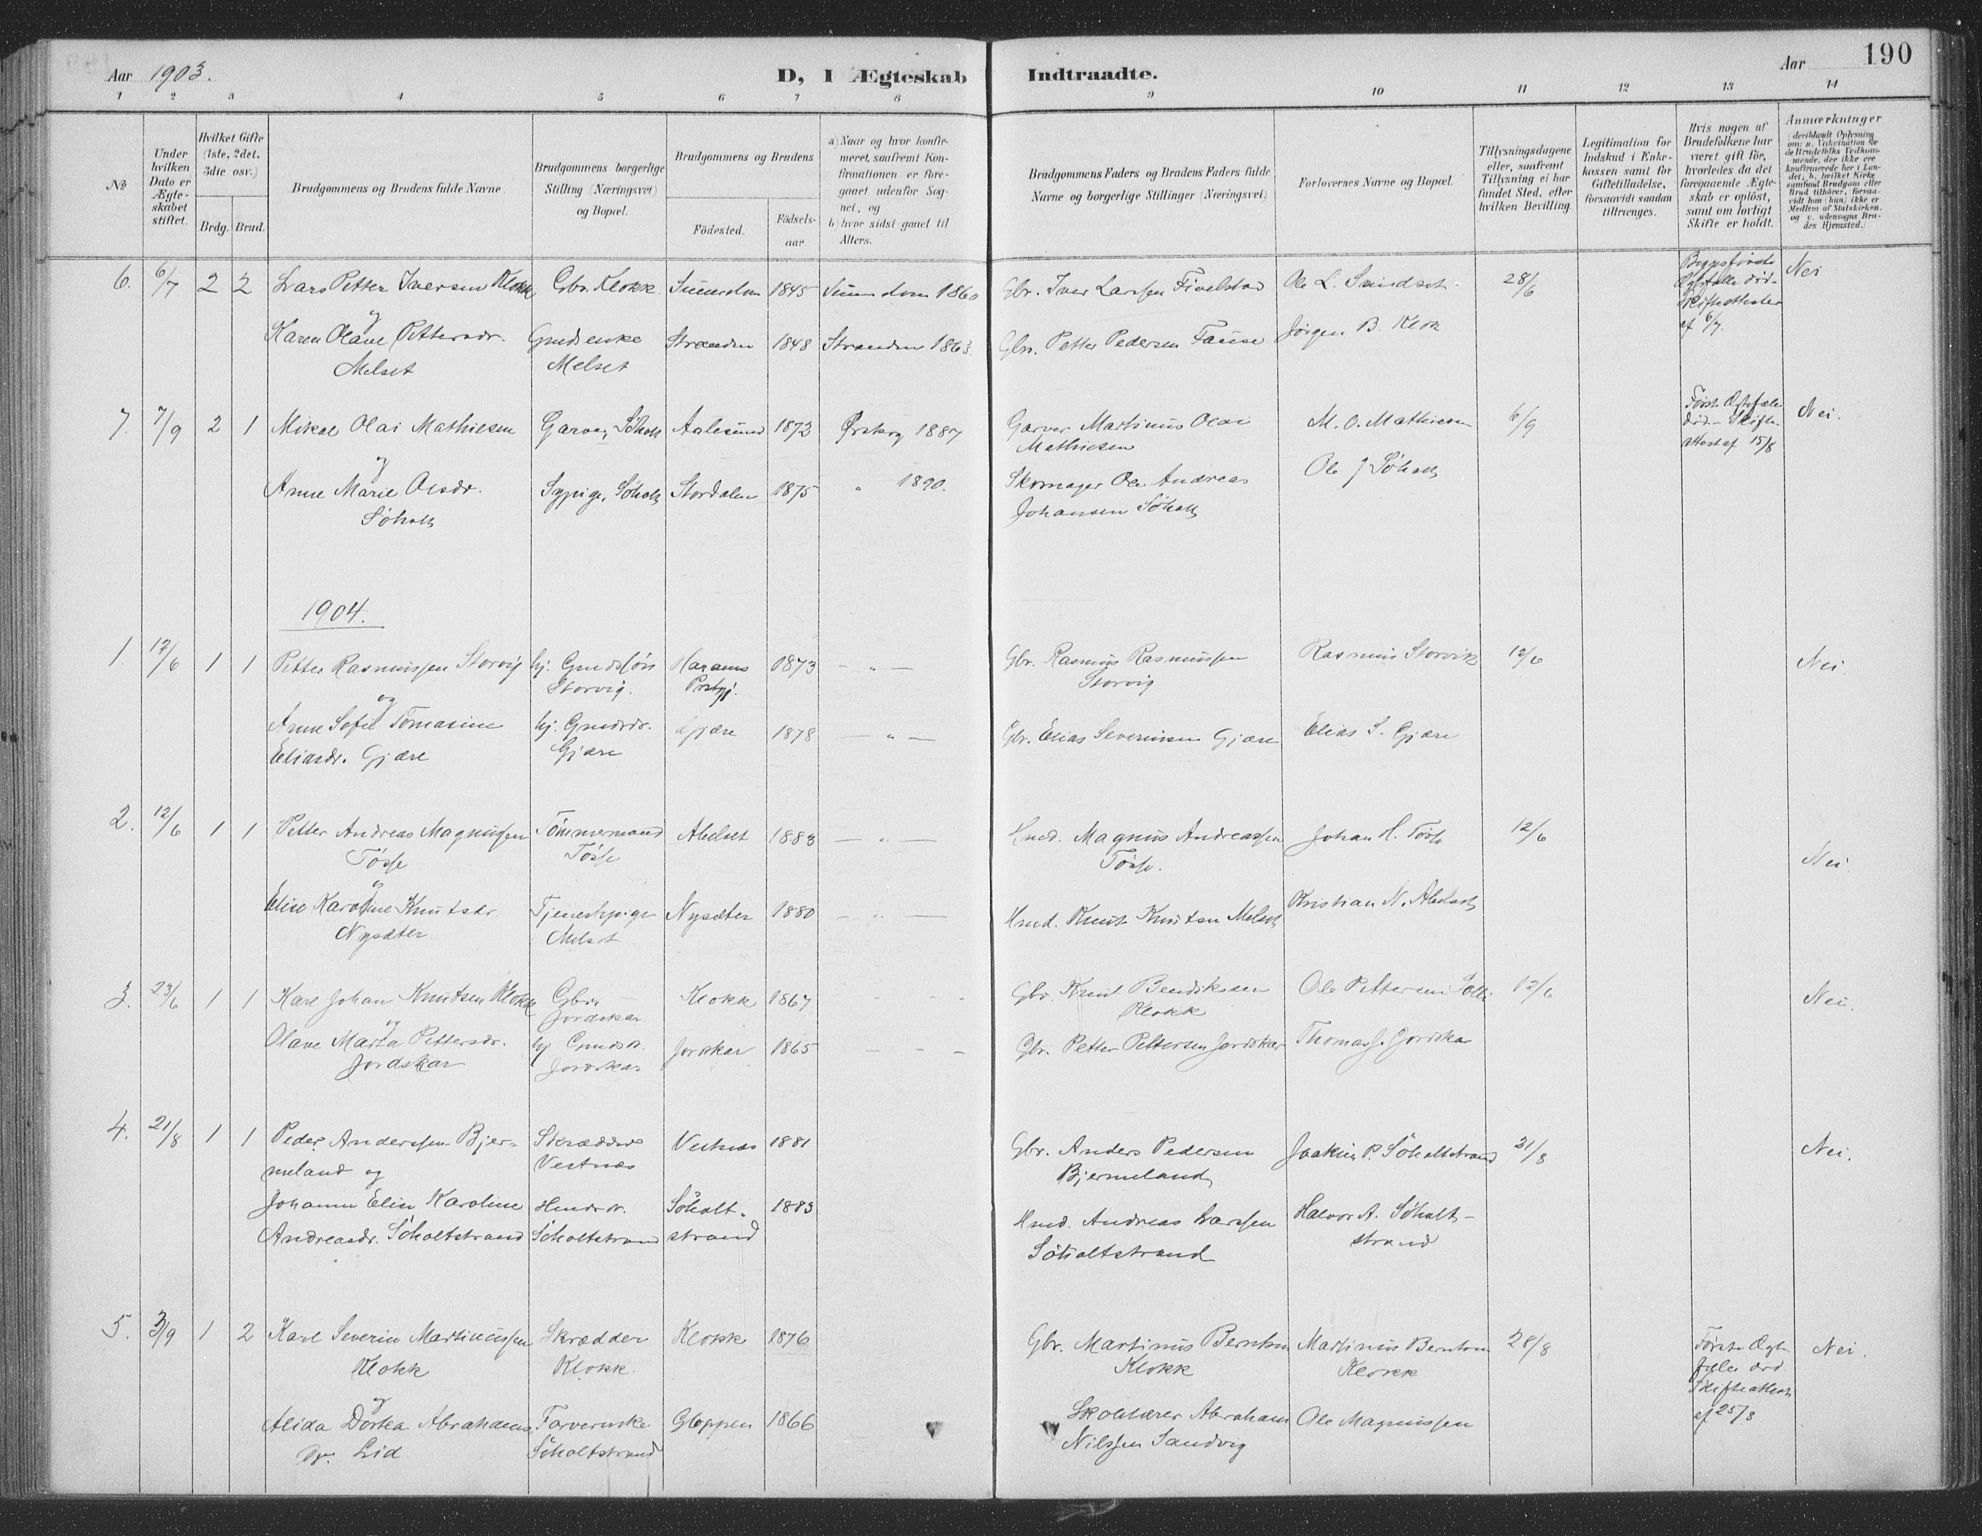 Aar 1903.
D, I Ægteskab Indtraadte.
Aar
190
1 2 3 4 5 6 7 8 9 10 11 12 13 14
No
Under hvilken Dato er Ægteskabet stiftet.
Hvilket Gifte (1ste, 2det, 3die osv.)
Brdg. Brud.
Brudgommens og Brudens fulde Navne.
Brudgommens borgerlige Stilling (Næringsvei) og Bopæl.
Brudgommens og Brudens
Fødested.
Fødselsaar.
a) Naar og hvor konfirmeret, saafremt Konfirmationen er foregaaet udenfor Sognet, og
b) hvor sidst gaaet til Alters.
Brudgommens Faders og Brudens Faders fulde Navne og borgerlige Stillinger (Næringsvei)
Forlovernes Navne og Bopæl.
Tillysningsdagene eller, saafremt Tillysning ei har fundet Sted, efter hvilken Bevilling.
Legitimation for Indskud i Enkekassen samt for Giftetilladelse, forsaavidt saadan tiltrænges.
Hvis nogen af Brudefolkene har været gift før, hvorledes da det foregaaende Ægteskab er opløst, samt om lovligt Skifte er holdt.
Anmærkninger
6. 6/7 2 2 Lars Petter Iversen Klokk Gbr. Klokk 1845 1860 Gbr. Iver Larssen Fivelstad Ole L. 28/6 Nei
og
Karen Olave Pettersdr. Melset Gmdsenke Melset Stranden 1848 Stranden 1863. Gbr. Petter Pedersen Fause Jørgen B. Klok
af 6/7.
7. 7/9 2 1 Mikal Olai Mathiesen Garver, Søholt Aalesund 1872 Ørskog 1887 Garver Martinus Olai Mathiesen M. O. Mathiesen 6/9 Nei.
Første død - Skifte attest af 15/8
og
Anne Marie Olsdr. Søholt Sypige, Søholt Stordalen 1875 " 1890. Skomager Ole Andreas Johansen Søholt Ole J Søholt
1904.
1. 12/6 1 1 Petter Rasmussen Storvig hj. Gmdssøn Storvig. Harams Prstgj. 1873 — " — Gbr. Rasmus Rasmussen Storvig Rasmus Storvik 12/6 Nei.
og
Anne Sofie Tomasine Eliasdr. Gjære hj. Gmdsdr. Gjære Gjære 1878 — " — Gbr. Elias Severinsen Gjære Elias S. Gjære
2. 12/6 1 1 Petter Andreas Magnussen Tøsse Tømmermand Tøsse Abelset 1883 — " — Hmd. Magnus Andreassen Tøsse. Johan H. Tøsse 12/6 Nei.
og
Elise Karoline Knutsdr. Nysæter Tjenestepige Melset Nysæter 1880 — " — Hmd. Knut Knutsen Melset Kristian N. Abelset
3. 23/6 1 1 Karl Johan Knutsen Klokk Gbr. Jordskar Klokk 1867 " " " Gbr. Knut Bendiksen Klokk Ole Pettersen 12/6 Nei.
og
Olave Marta Pettersdr. Jordskar hj Gmdsdr. Jordskar Jordskar 1865 — — — Gbr. Petter Pettersen Jordskar Thomas J. Jordskar
4. 21/8 1 1 Peder Anderssen Bjermeland og Skrædder Vestnæs Vestnæs 1881 Gbr. Anders Pedersen Bjermeland, Joakim P. Søholtstrand 21/8 Nei.
Johanne Elin Karoline Andreasdr. Søholtstrand Hmdsdr. Søholtstrand Søholtstrand 1883 Hmd. Andreas Larssen Søholtstrand Halvor A. Søholtstrand
5. 3/9 1 2 Karl Severin Martinussen Klokk Skrædder Klokk. Klokk 1876 Gbr. Martinus Berntsen Klokk Martinus Berntsen Klokk 28/8 Nei.
Første død Skifteattest af 25/8
og
Alida Dortea Abrahamsdr. Lid Farverenke Søholtstrand Gloppen 1866 Skolelærer Abraham Nilssen Sandvig Ole Magnussen